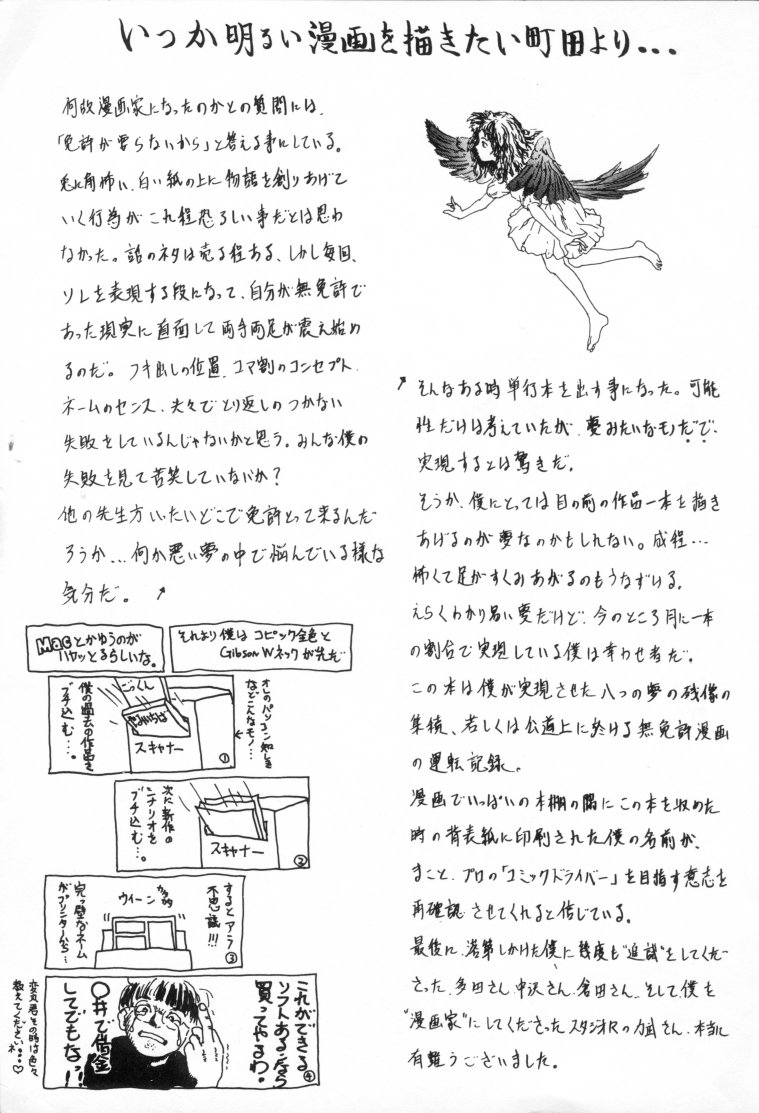 いつか明るい漫画を描きたい町田より...
何故漫画家になったのかとの質問には、
「免許が要らないから」と答える事にしている。
兎に角怖い、白い紙の上に物語を創りあげて
いく行為がこれ程恐ろしい事だとは思わ
なかった。話のネタは売る程ある、しかし毎回、
ソレを表現する段になって、自分が無免許で
あった現実に直面して両手両足が震え始め
るのだ。フキ出しの位置、コマ割のコンセプト、
ネームのセンス、夫々でとり返しのつかない
失敗をしているんじゃないかと思う。みんな僕の
失敗を見て苦笑していないか?
他の先生方いったいどこで免許とって来るんだ
ろうか...何か悪い夢の中で悩んでいる様な
気分だ。↗
↗そんなある時単行本を出す事になった。可能
性だけは考えていたが、夢みたいなモノだで、
実現するとは驚きだ。
そうか、僕にとっては目の前の作品一本を描き
あげるのが夢なのかもしれない。成程...
怖くて足がすくみあがるのもうなずける。
えらくわかり易い夢だけど、今のところ月に一本
の割合で実現している僕は幸わせ者だ。
この本は僕が実現させた八つの夢の残像の
集積、若しくは公道上に於ける無免許漫画
の運転記録。
漫画でいっぱいの本棚の隅にこの本を収めた
時の背表紙に印刷された僕の名前が、
まこと、プロの「コミックドライバー」を目指す意志を
再確認させてくれると信じている。
最後に、落第しかけた僕に幾度も"追試"をしてくだ
さった、多田さん、中沢さん、倉田さん、そして僕を
"漫画家"にしてくださったスタジオRの力武さん、本当に
有難うございました。
Macとかゆうのが
ハヤッとるらしいな。
それより僕はコピック全色と
Gibson Wネックが先だ
オレのパソコン知しき
などこんなモノ...
ごっくん
スキャナー
僕の過去の作品を
ブチ込む...。
①
次に新作の
シナリオを
ブチ込む...。
スキャナー
②
するとアラ
不思議!!!
ウィーン
完っ璧なネーム
がプリンターから...
③
これができる
ソフトあるなら
買ってやるわ。
〇井で借金
してでもなっ!!
④
その時は色々
教えてくださいネ...♡